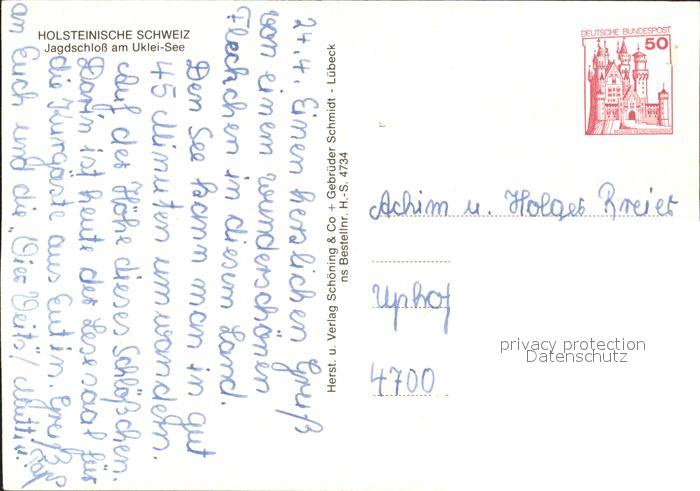 HOLSTEINISCHE SCHWEIZ
Jagdschloß am Uklei-See
24.4. Einen herzlichen Gruß
von einem wunderschönen
Fleckchen in diesem Land.
Den See kann man in gut
45 Minuten umwandern.
Auf der Höhe dieses Schlößchen.
Darin ist heute der Lesesaal für
die Kurgäste aus Eutin. Gruß
an Euch und die "Vier Veits"/ Mutti u.
Herst. u. Verlag Schöning & Co + Gebrüder Schmidt - Lübeck
ns Bestellnr. H.-S. 4734
DEUTSCHE BUNDESPOST
50
Achim u. Holger Breier
Uphof
4700
privacy protection
Datenschutz